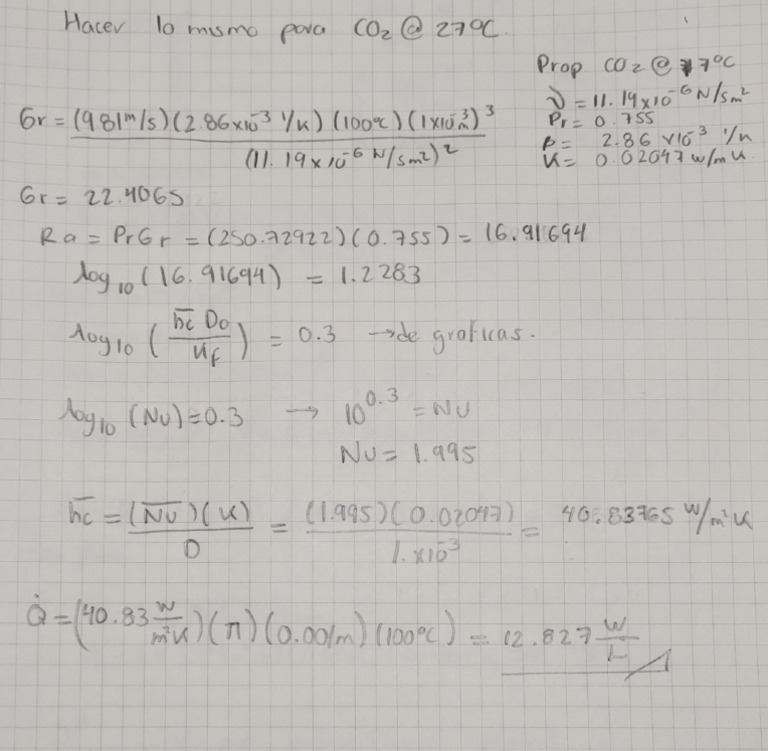 Hacer lo mismo para CO2 @ 27°C.
Prop CO2 @ 77°C
ν = 11.19x10^-6 N/sm²
Pr = 0.755
β = 2.86 x10^-3 1/K
K = 0.02047 w/m K.
Gr = (981m/s)(2.86x10^-3 1/K)(100°C)(1x10^-3m)^3
(11.19x10^-6 N/sm²)²
Gr = 22.4065
Ra = PrGr = (250.72922)(0.755) = 16.91694
log10 (16.91694) = 1.2283
log10 (h̄c Do / Kf) = 0.3 → de graficas.
log10 (Nu) = 0.3 → 10^0.3 = Nu
Nu = 1.995
h̄c = (N̄u)(K) / D = (1.995)(0.02047) / 1.x10^-3 = 40.83765 W/m²K
Q̇ = (40.83 W/m²K)(π)(0.001m)(100°C) = 12.827 W/L